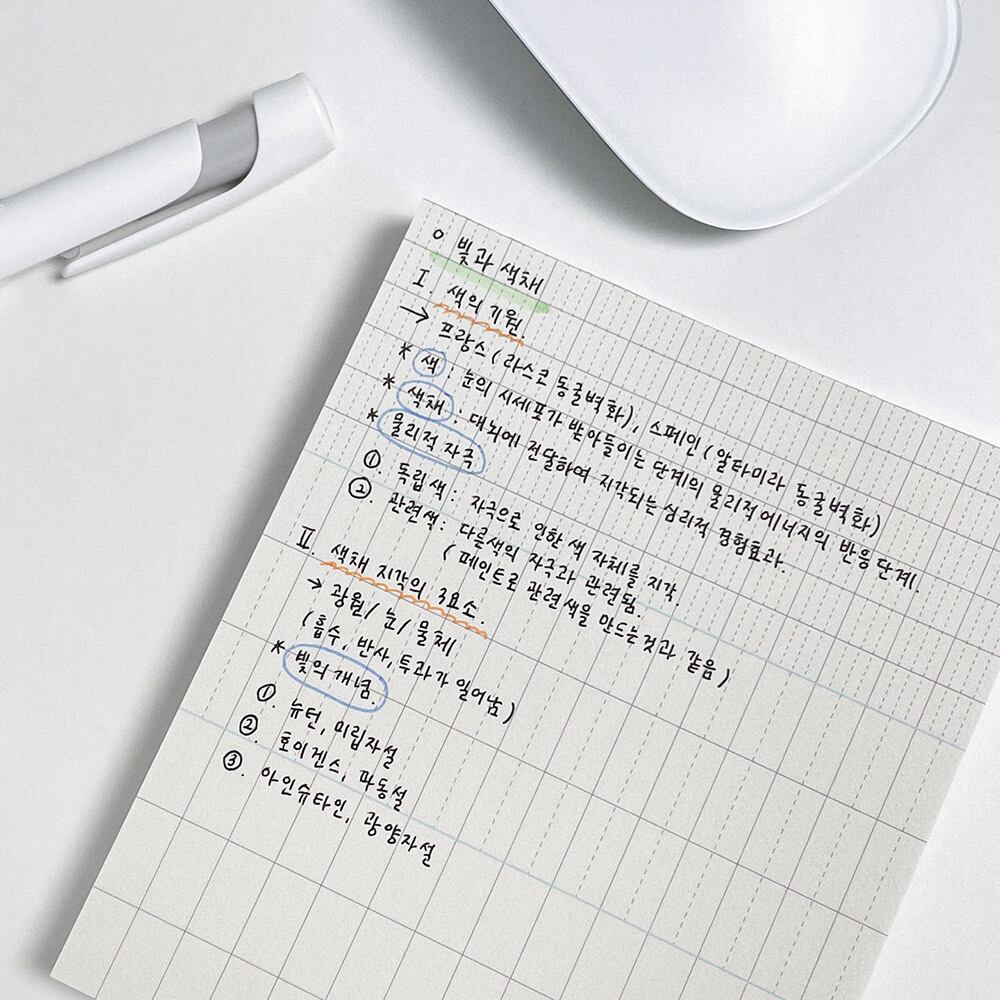 o 빛과 색채
I. 색의 기원.
→ 프랑스(라스코 동굴벽화), 스페인(알타미라 동굴벽화)
* 색 : 눈의 시세포가 받아들이는 단계의 물리적에너지의 반응단계.
* 색채 : 대뇌에 전달하여 지각되는 심리적 경험효과.
* 물리적 자극
①. 독립색 : 자극으로 인한 색 자체를 지각.
②. 관련색 : 다른색의 자극과 관련됨.
(페인트로 관련색을 만드는것과 같음)
II. 색채 지각의 3요소.
→ 광원/ 눈/ 물체
(흡수, 반사, 투과가 일어남)
* 빛의 개념.
①. 뉴턴, 미립자설
②. 호이겐스, 파동설
③. 아인슈타인, 광양자설